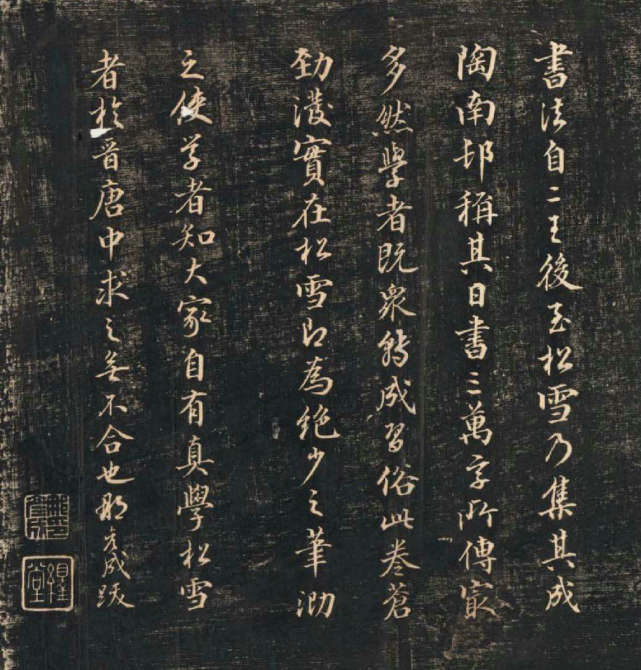 書法自二王後至松雪乃集其成
陶南邨稱其日書三萬字所傳㝡
多然學者既衆轉成習俗此卷蒼
勁實在松雪即為絕少之筆泐
之使學者知大家自有真學松雪
者於晉唐中求之無不合也那彥成跋
繹堂